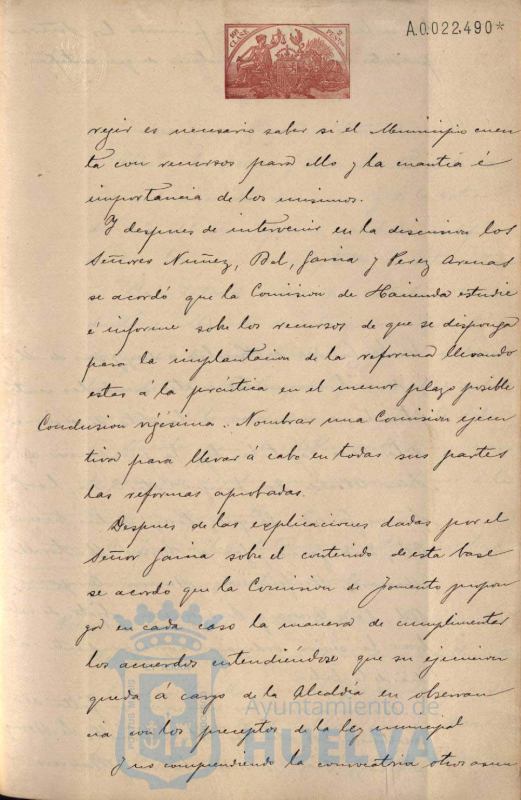 10ª CLASE 2 PESETAS
A.0.022.490*
regir es necesario saber si el Municipio cuen
ta con recursos para ello y la cuantia é
importancia de los mismos.
Y despues de intervenir en la discusion los
Señores Nuñez, Bel, Gaina y Perez Arenas
se acordó que la Comision de Hacienda estudie
é informe sobre los recursos de que se disponga
para la implantacion de la reforma llevando
estas á la práctica en el menor plazo posible
Conclusion vigésima. Nombrar una Comision ejecu
tiva para llevar á cabo en todas sus partes
las reformas aprobadas.
Despues de las explicaciones dadas por el
Señor Gaina sobre el contenido de esta base
se acordó que la Comision de Fomento propon
ga en cada caso la manera de cumplimentar
los acuerdos entendiéndose que su ejecucion
queda á cargo de la Alcaldía en observan
cia con los preceptos de la ley municipal
Y no comprendiendo la convocatoria otros asun
Ayuntamiento de
HUELVA